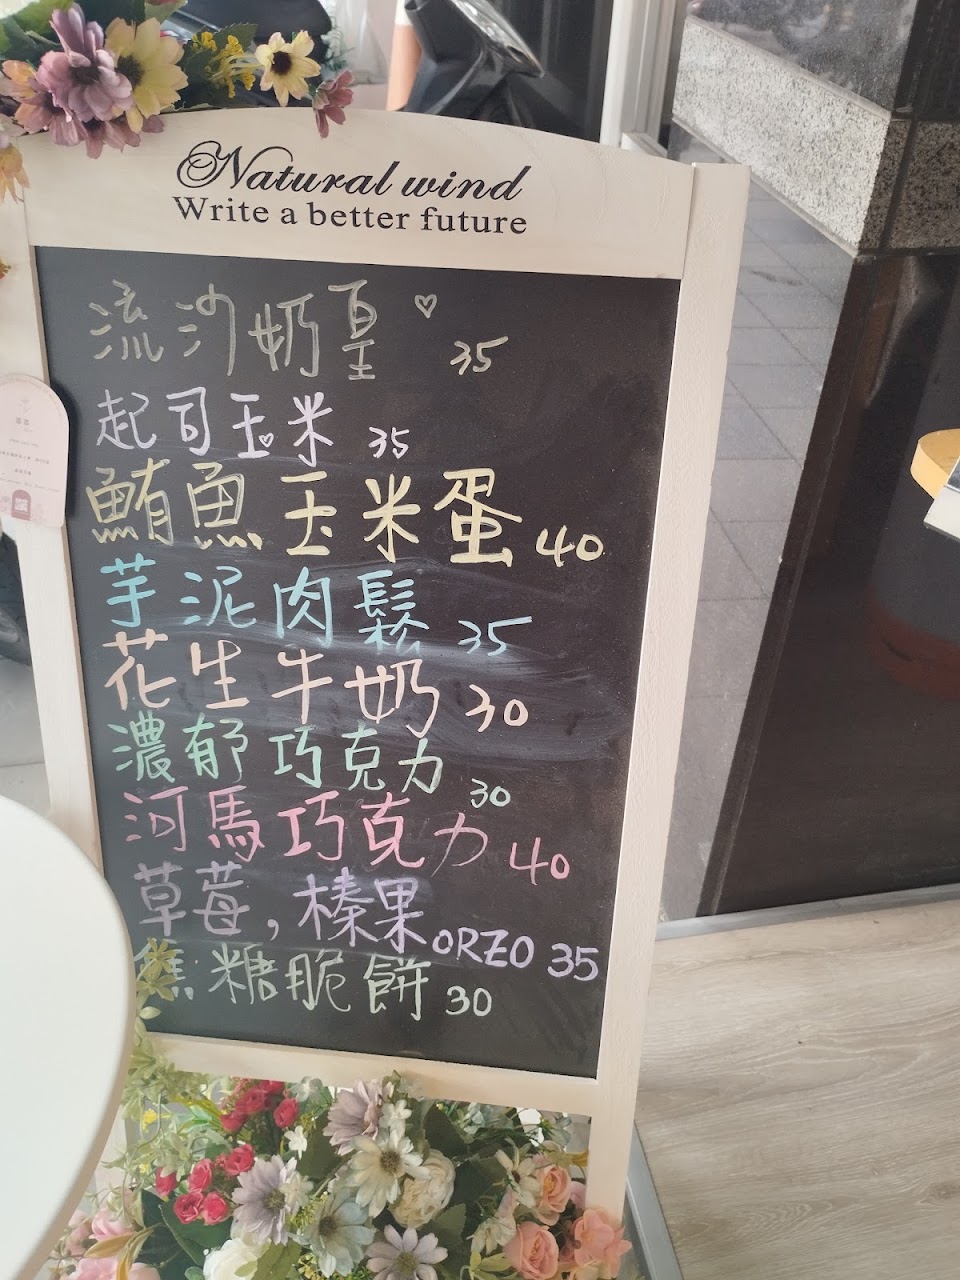 Natural wind
Write a better future
流沙奶皇♡ 35
起司玉米 35
鮪魚玉米蛋 40
芋泥肉鬆 35
花生牛奶 30
濃郁巧克力 30
河馬巧克力 40
草莓,榛果ORZO 35
焦糖脆餅 30